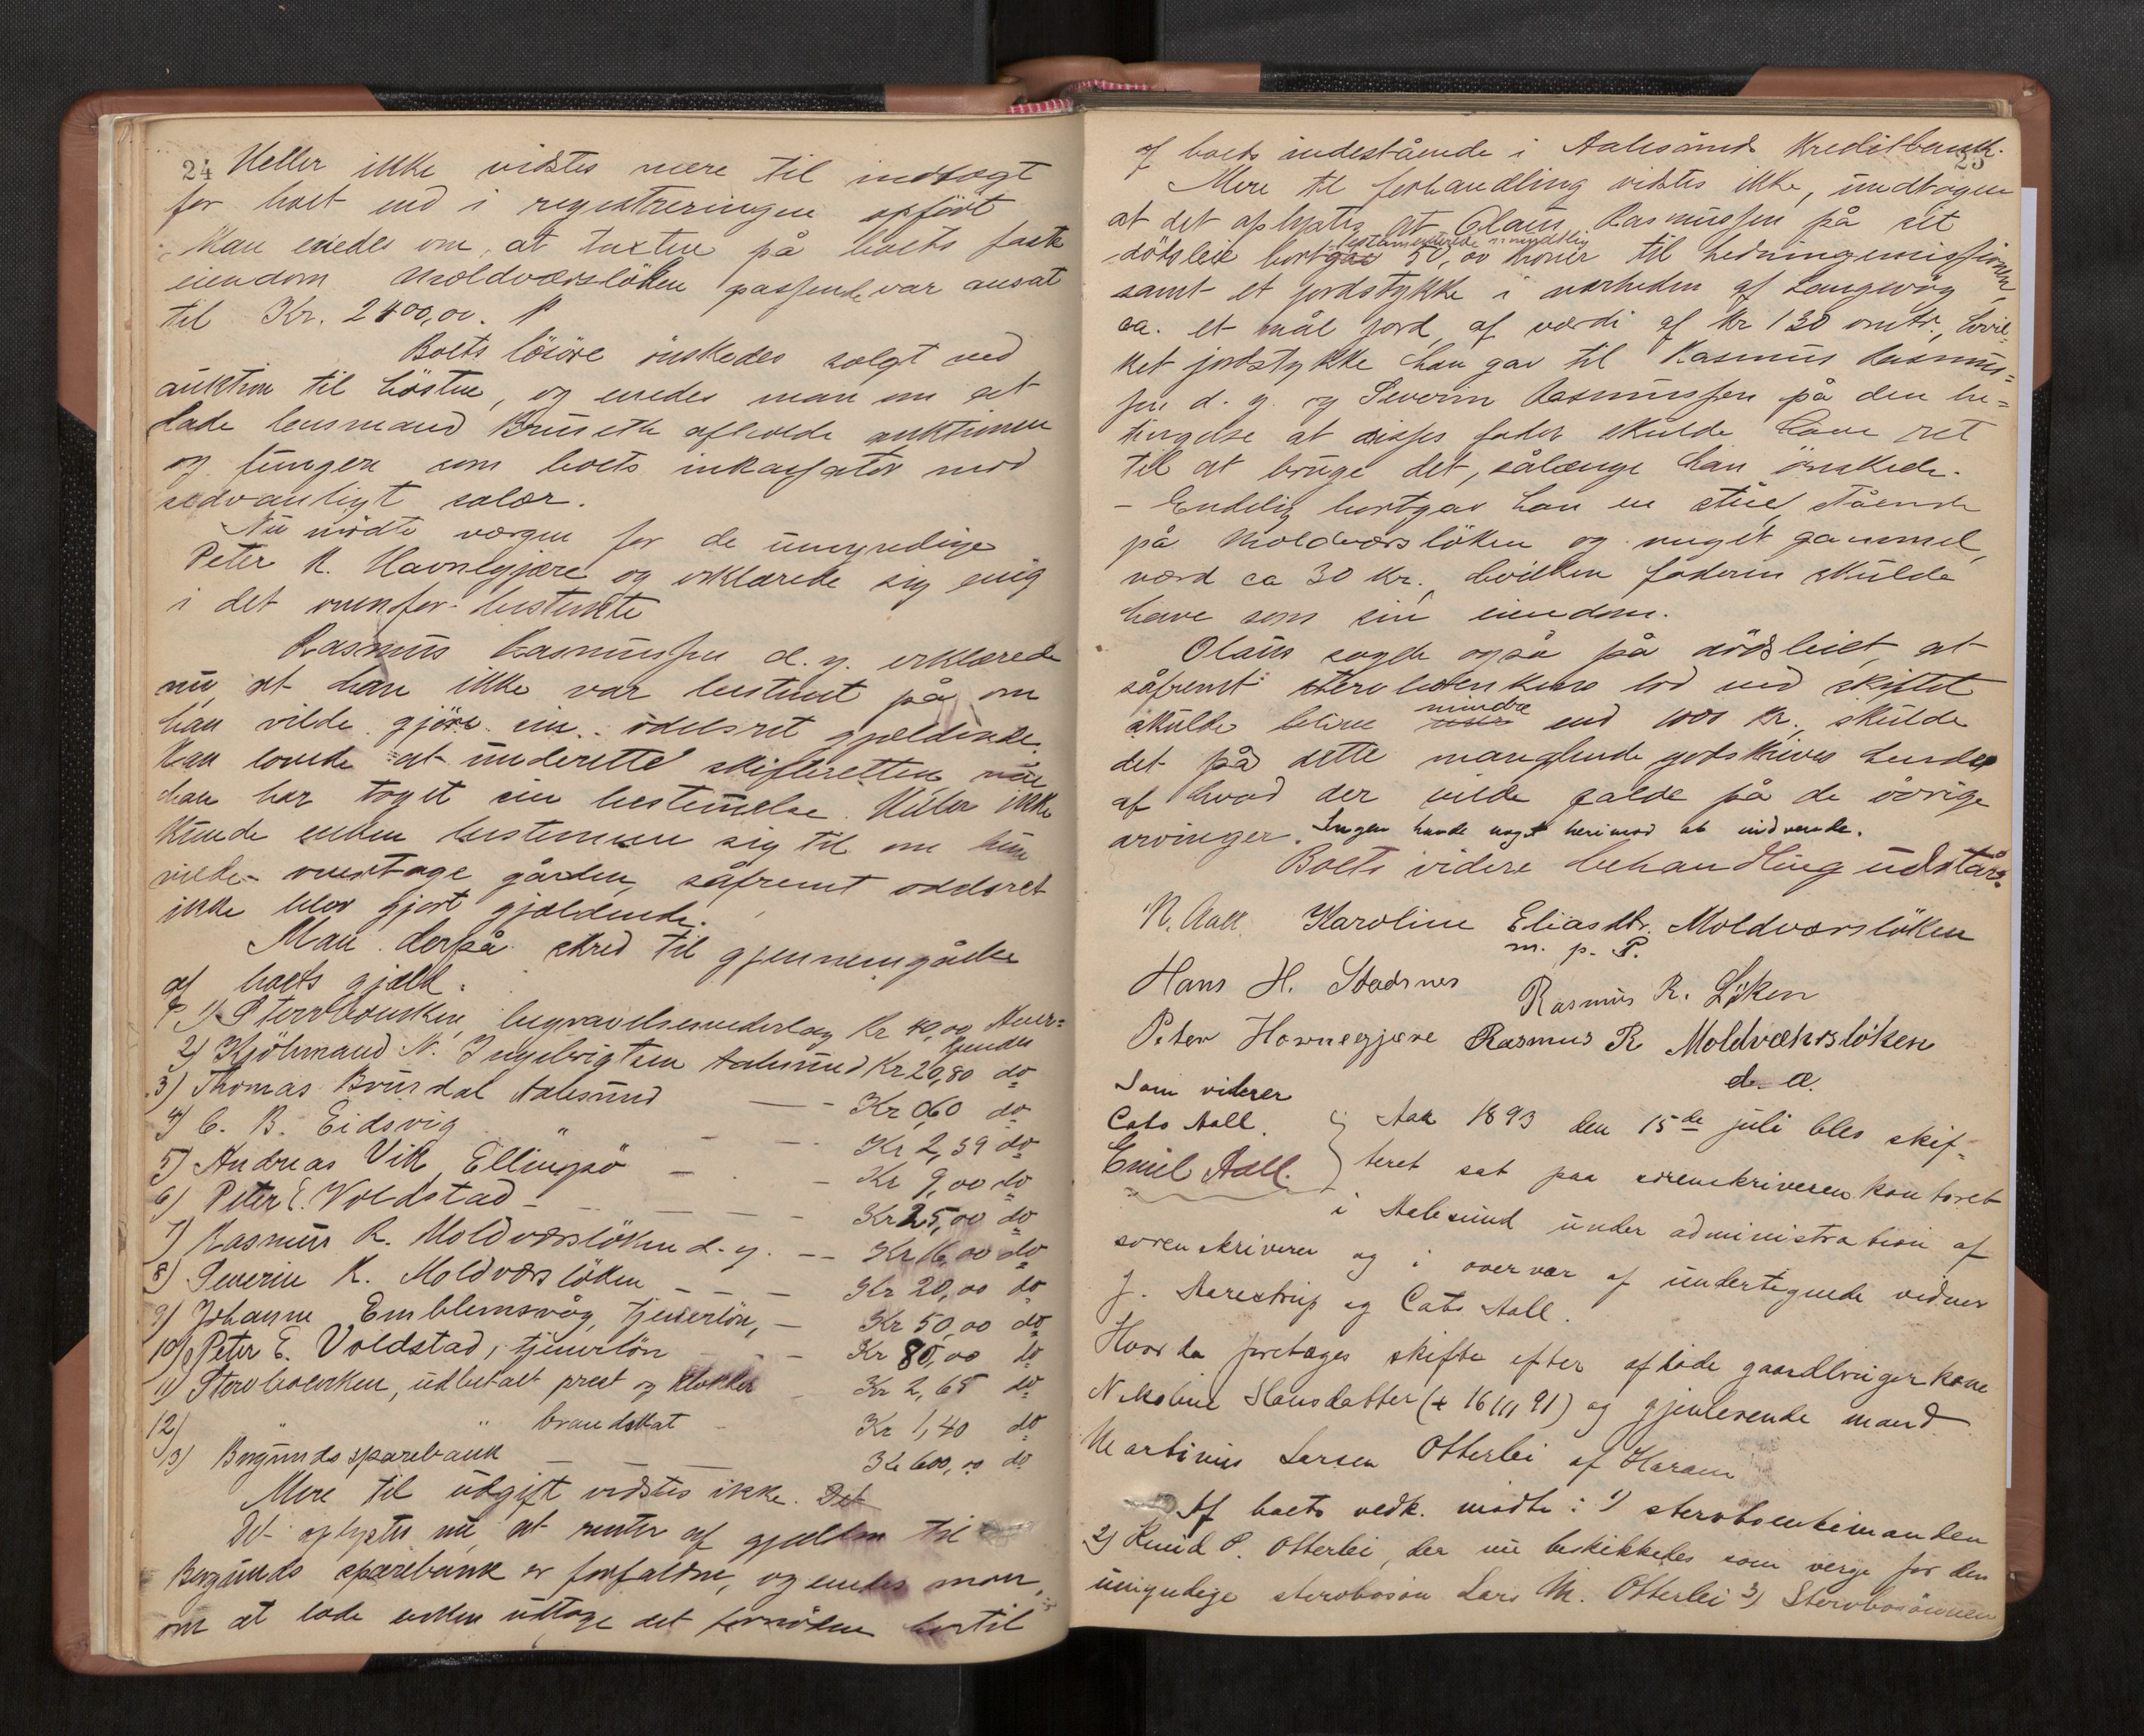 24 Heller ikke vidstes mere til indtægt
for boet end i registreringen opført
Man enedes om, at taxten på boets faste
eiendom Moldværsløken passende var ansat
til Kr. 2400,00.
Boets løsøre ønskedes solgt ved
auktion til høsten, og enedes man om at
lade lensmand Brüseth afholde auktionen
og fungere som boets inkassator mod
sedvanligt salær.
Nu mødte værgen for de umyndige
Peter K. Havnegjære og erklærede sig enig
i det ovenfor bestemte
Rasmus Rasmussen d. y. erklærede
nu at han ikke var bestemt på om
han vilde gjøre sin odelsret gjældende.
Han lovede at underrette skifteretten når
han har taget sin bestemelse. Heller ikke
kunde enken bestemme sig til om hun
vilde overtage gården, såfremt oddsret
ikke blev gjort gjældende.
Man derpå skred til gjennemgåelse
af boets gjæld.
1) Stervboenken, begravelsesvederlag Kr 40,00 Aner=
kjendes
2) Kjøbmand N. Ingebrigtsen Aalesund Kr 20,80 do
3) Thomas Brusdal Aalesund — - Kr 0,60 do
4) C. B. Eidsvig " - — Kr 2,39 do
5) Andreas Vik Ellingsø — - Kr 9,00 do
6) Peter E. Voldstad - — — — Kr 25,00 do
7) Rasmus R. Moldværsløken d. y. — — Kr 16,00 do
8) Severin R. Moldværsløken — — — Kr 20,00 do
9) Johanne Emblemsvåg, tjenerløn, — Kr 50,00 do
10) Peter E. Voldstad, tjenerløn - - — Kr 80,00 do
11) Stervboenken, udbetalt prest og klokker Kr 2,65 do
12) " " brandskat - Kr 1,40 do
13) Borgunds sparebank — — Kr 600,00 do
Mere til udgift vidstes ikke. Det
Det oplystes nu, at renter af gjælden til
Borgunds sparebank er forfaldne, og enedes man
om at lade enken udtage det fornødne hertil
25
af boets indestående i Aalesunds Kreditbank.
Mere til forhandling vidstes ikke, undtagen
at det oplystes at Olaus Rasmussen på sit
testamenterede mundtlig
dødsleie bortgav 50,00 kroner til hedningemissionen,
samt et jordstykke i nærheden af Langevåg
ca. et mål jord, af værdi af Kr 130 omtr., hvil=
ket jordstykke han gav til Rasmus Rasmus=
sen d. y. og Severin Rasmussen på den be=
tingelse at disses fader skulde have ret
til at bruge det, sålænge han ønskede.
– Endelig bortgav han en stue, stående
på Moldværsløken og meget gammel,
værd ca 30 Kr., hvilken faderen skulde
have som sin eiendom.
Olaus sagde også på dødsleiet, at
såfremt stervboenkens lod ved skiftet
mindre
skulde blive end 1000 Kr., skulde
det på dette manglende godskrives hende
af hvad der vilde falde på de øvrige
arvinger. Ingen havde noget herimod at indvende.
Boets videre behandling udstår.
N. Aall Karoline Eliasdtr. Moldværsløken
m. p. P.
Hans H. Stadsnes Rasmus R. Løken
Peter Havnegjære Rasmus R Moldværsløken
d. æ.
Som vidner
Cato Aall.
Emil Aall.
Aar 1893 den 15de juli blev skif-
teret sat paa sorenskriveren kontoret
i Aalesund under administration af
sorenskriveren og i overvær af undertegnede vidner
J. Marestrup og Cato Aall.
Hvorda foretages skifte efter afdøde gaardbrugerkone
Nikoline Hansdatter († 16/11 91) og gjenlevende mand
Martinus Larsen Otterlei af Haram
Af boets vedk. mødte: 1) stervboenkemanden
2) Knud P. Otterlei, der nu beskikkedes som verge for den
umyndige stervbosøn Lars M. Otterlei 3) Stervbosønnen